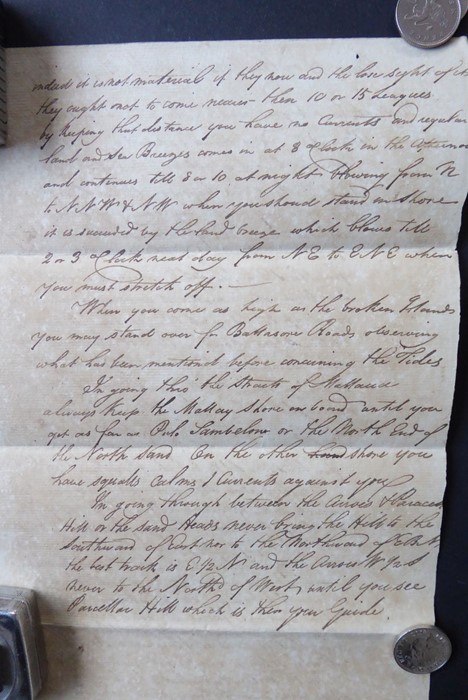 indeed it is not material if they now and then lose sight of it
they ought not to come nearer then 10 or 15 Leagues
by keeping that distance you have no Currents and regular
land and Sea Breezes comes in at 3 o'Clock in the afternoo
and continues till 8 or 10 at night blowing from N
to N N W & N W when you should stand in Shore
it is succeeded by the land breeze which blows till
2 or 3 o'Clock next day from N E to E N E when
you must stretch off. —
When you come as high as the broken Islands
you may stand over for Roads observing
what has been mentioned before concerning the Tides
In going thro' the Straits of Mallacca
always keep the Mallay Shore on board until you
get as far as Pulo Sambelong or the North End of
the North Sand On the other shore you
have squalls calms & Currents against you
In going through between the Arroes & Parcellar
Hill or the Sand Heads never bring the Hill to the
Southward of East nor to the Northward of E
the best track is E ½ N and the Arroes W ½ S
never to the North'd of West, until you see
Parcellar Hill which is then your Guide.